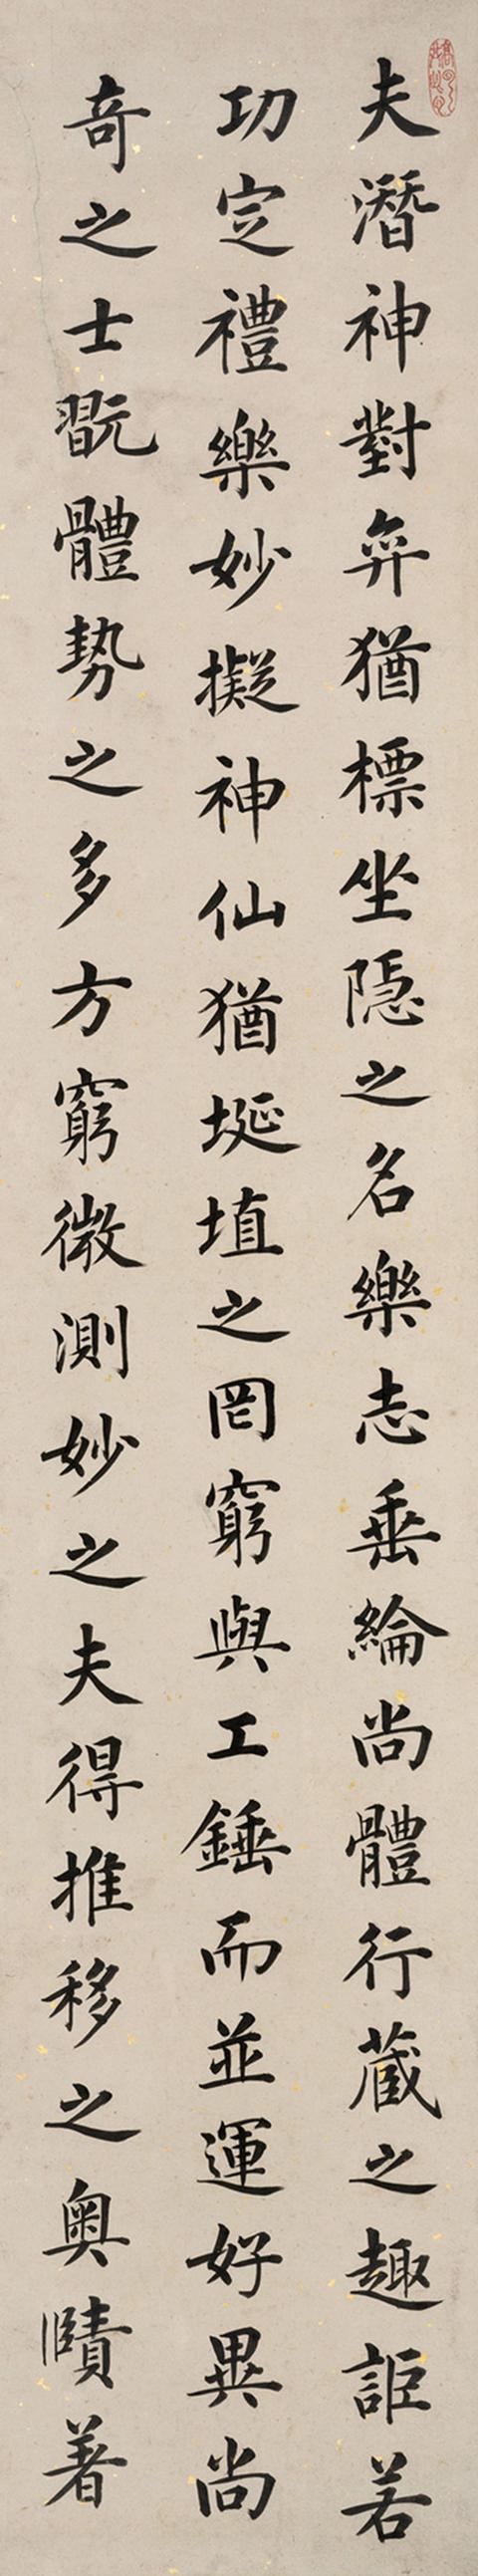 夫潛神對弈猶標坐隱之名樂志垂綸尚體行藏之趣詎若
功定禮樂妙擬神仙猶埏埴之罔窮與工錘而並運好異尚
奇之士翫體勢之多方窮微測妙之夫得推移之奧賾著